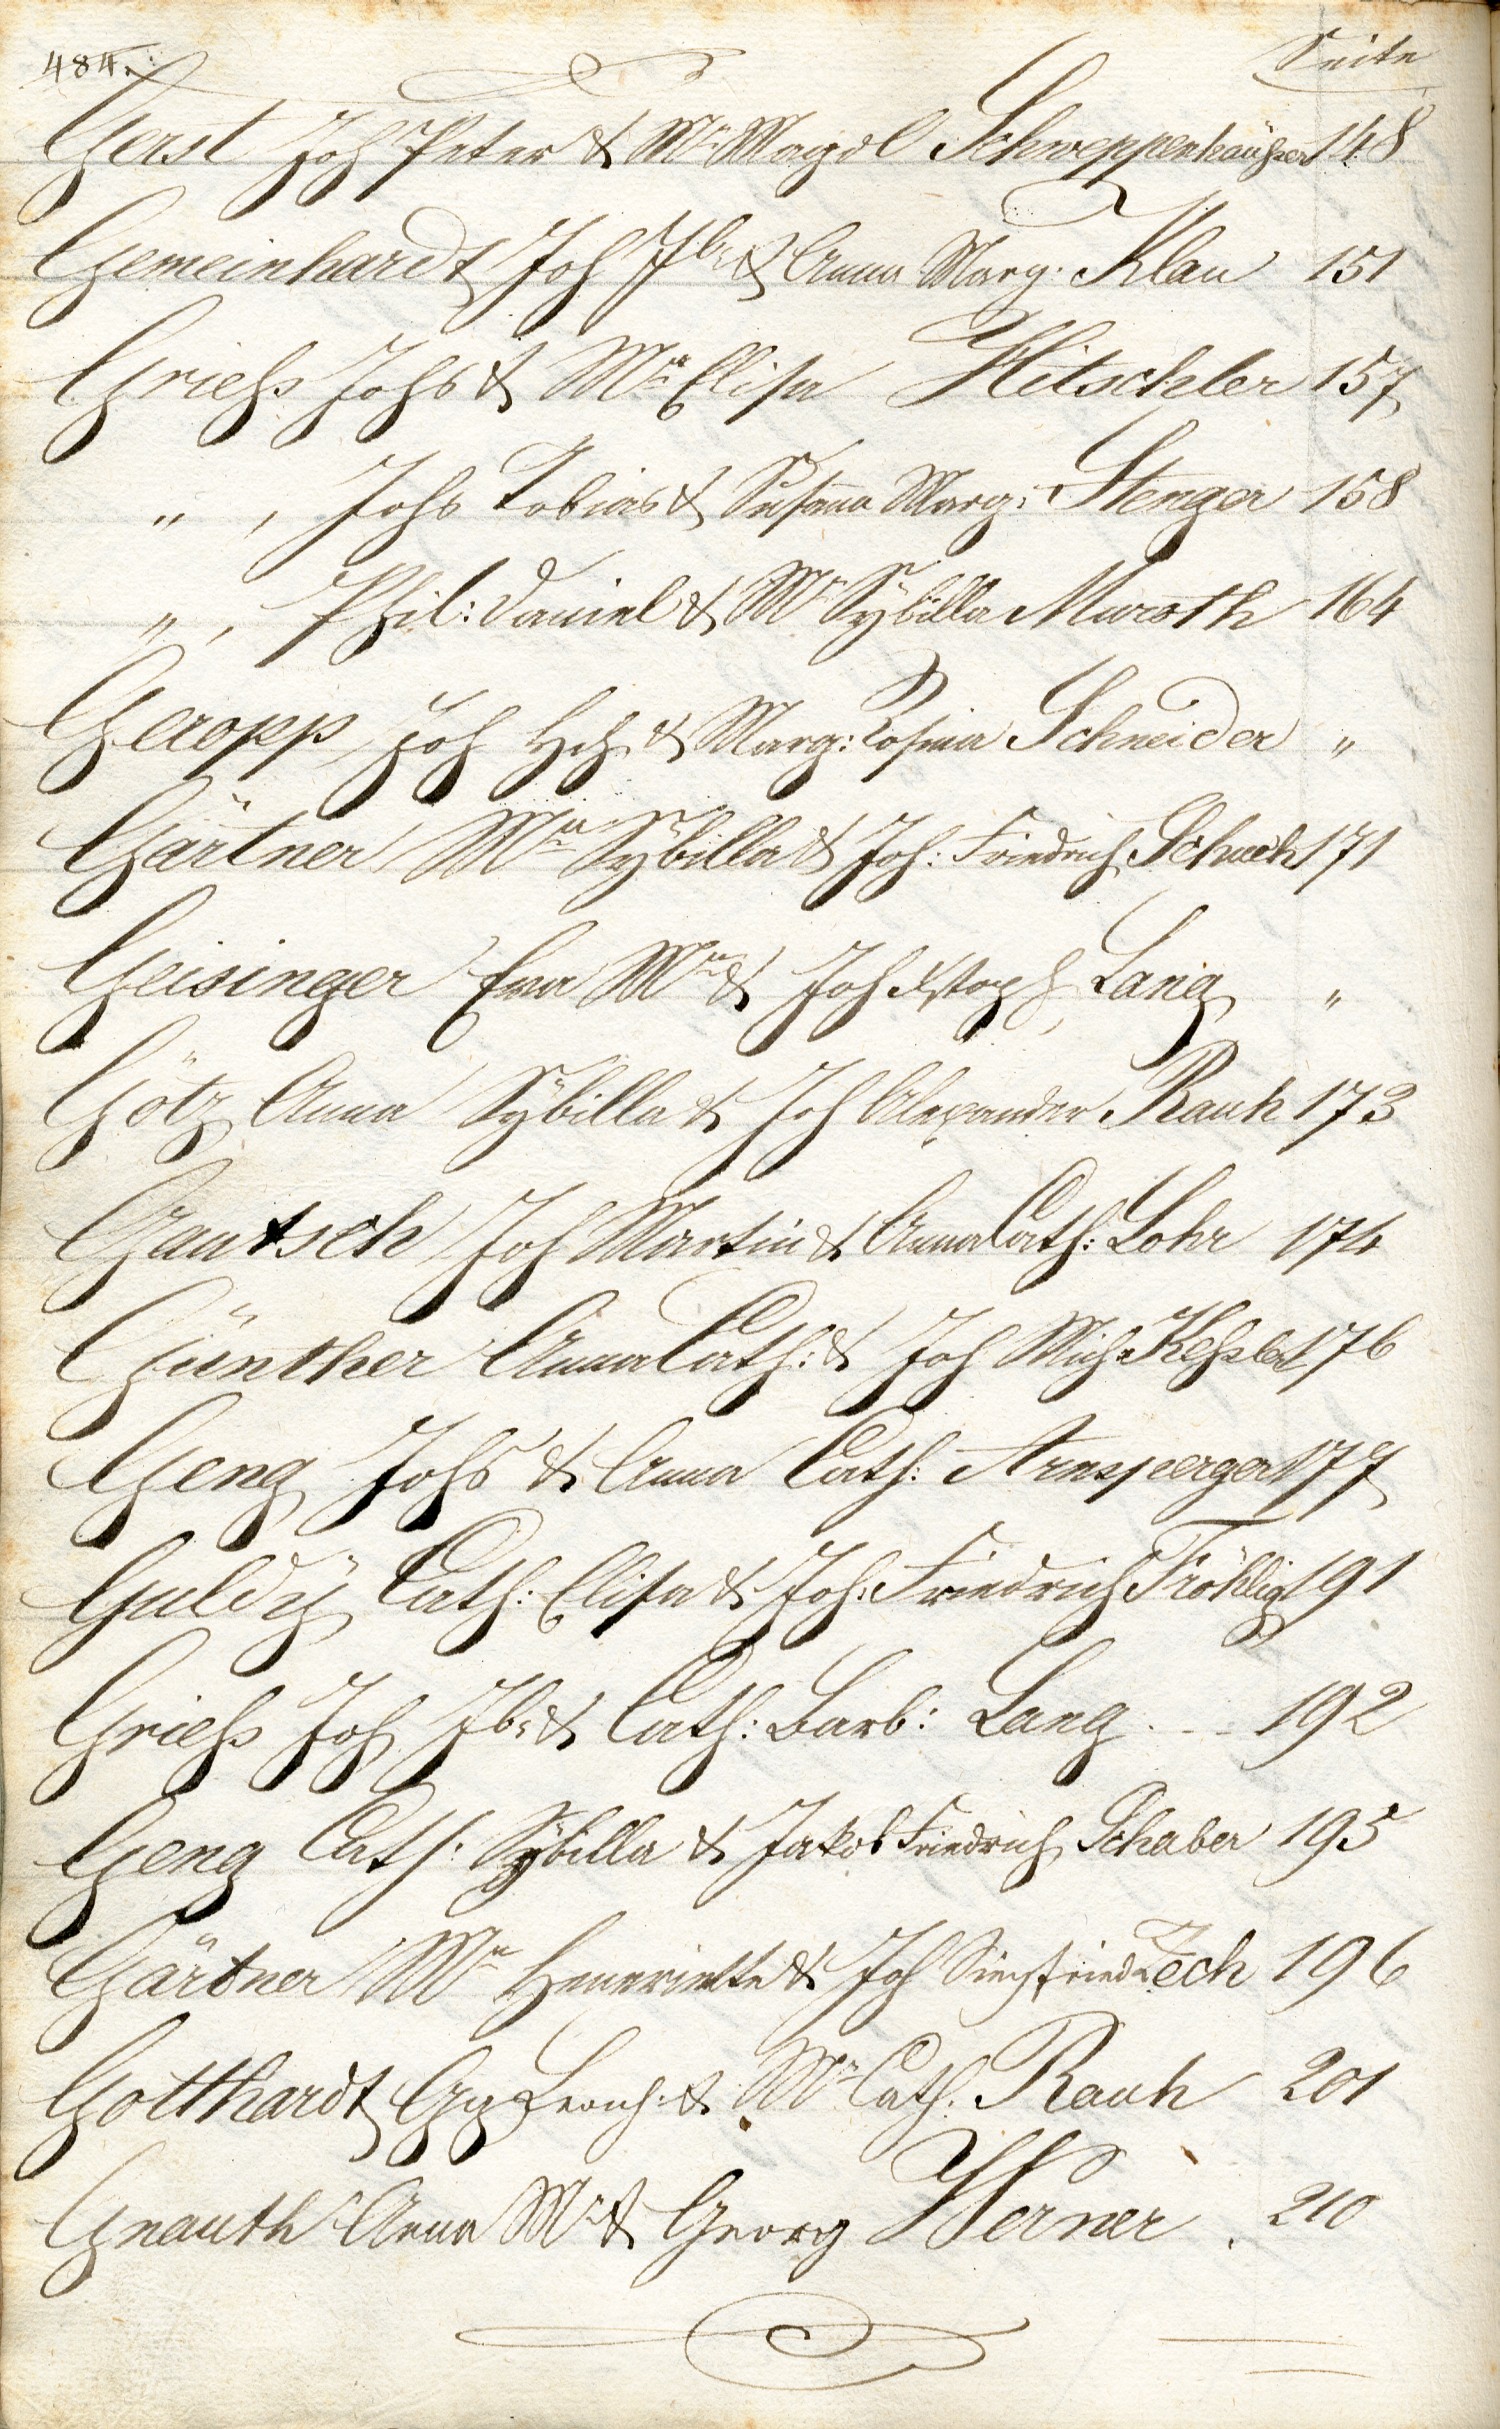 484.
Seite
Gerst Joh Peter & Mr Magdl Schweppenhäußer 148
Gemeinhardt, Joh Jb: & Anna Marg: Klau 151
Grieß Johs & Mra Elisa Hitschler 157
" , Johs Tobias & Susana Marg: Stenger 158
" , Phil: Daniel & Mr Sÿbilla Muroth 164
Geropp, Joh Hch & Marg: Rosina Schneider "
Gärtner Mra Sÿbilla & Joh: Friedrich Schuch 171
Geisinger Eva Mra & Joh Xstoph, Lang "
Götz Anna Sÿbilla & Joh Alexander Rauh 173
Gautsch Joh Martin & Anna Cath: Lohr 174
Günther Anna Cath: & Joh Mich: Keßler 176
Geng Johs & Anna Cath: Arnsperger 177
Guldÿ Cath: Elisa & Joh: Friedrich Fröhlig 191
Grieß Joh Jb: & Cath: Barb: Lang . - - 192
Geng Cath: Sÿbilla & Jakob Friedrich Schaber 195
Gärtner Mra Hennriette & Joh Siegfried Zech 196
Gotthardt Gg & Mra Cath. Rauh 201
Gnauth Anna Mr & Georg Werner . 210